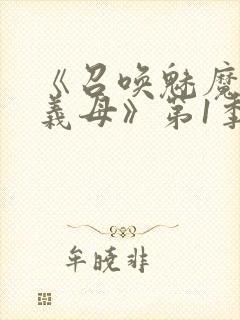 《召唤魅魔
義母》第1季
牟晓非